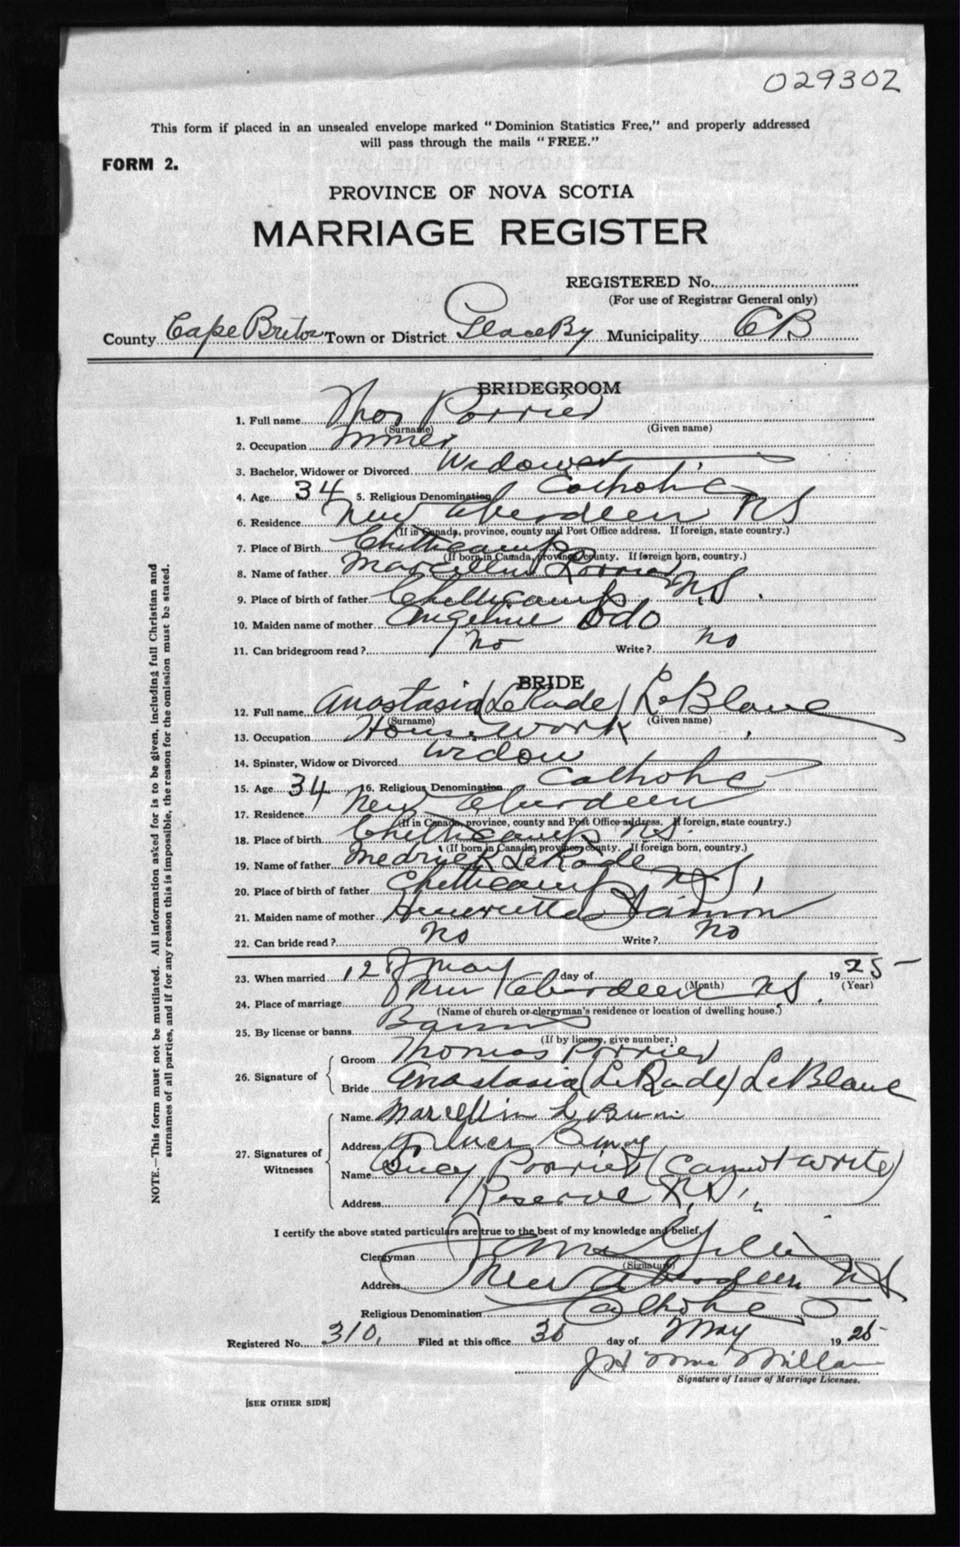 029302
This form if placed in an unsealed envelope marked "Dominion Statistics Free," and properly addressed
will pass through the mails "FREE."
FORM 2.
PROVINCE OF NOVA SCOTIA
MARRIAGE REGISTER
REGISTERED No.
(For use of Registrar General only)
County Cape Breton Town or District Glace By Municipality CB
BRIDEGROOM
1. Full name Thos Porrier
(Surname) (Given name)
2. Occupation Miner
3. Bachelor, Widower or Divorced Widower
4. Age 34 5. Religious Denomination Catholic
6. Residence New Aberdeen NS
(If in Canada, province, county and Post Office address. If foreign, state country.)
7. Place of Birth Chetticamp
(If born in Canada, province, county. If foreign born, country.)
8. Name of father Marcellin Porrier
9. Place of birth of father Chetticamp N,S.
10. Maiden name of mother Angeline Odo
11. Can bridegroom read? No Write? no
BRIDE
12. Full name Anastasia (LeRade) LeBlanc
(Surname) (Given name)
13. Occupation Housework
14. Spinster, Widow or Divorced Widow
15. Age 34 16. Religious Denomination Catholic
17. Residence New Aberdeen
(If in Canada, province, county and Post Office address. If foreign, state country.)
18. Place of birth Chetticamp NS.
(If born in Canada, province, county. If foreign born, country.)
19. Name of father LeRade
20. Place of birth of father Chetticamp NS,
21. Maiden name of mother Henrietta
22. Can bride read? No Write? No
23. When married 12 May day of 1925
(Month) (Year)
24. Place of marriage New Aberdeen NS.
(Name of church or clergyman's residence or location of dwelling house.)
25. By license or banns Banns
(If by license, give number.)
26. Signature of
Groom Thomas Porrier
Bride Anastasia (LeRade) LeBlanc
27. Signatures of Witnesses
Name
Address
Name Lucy Porrier (Cannot write)
Address Reserve N.S.,
I certify the above stated particulars are true to the best of my knowledge and belief.
Clergyman
(Signature)
Address New Aberdeen NS
Religious Denomination Catholic
Registered No. 310, Filed at this office 30 day of May 1925
JH McMillan
Signature of Issuer of Marriage Licenses.
[SEE OTHER SIDE]
NOTE.—This form must not be mutilated. All information asked for is to be given, including full Christian and
surnames of all parties, and if for any reason this is impossible, the reason for the omission must be stated.